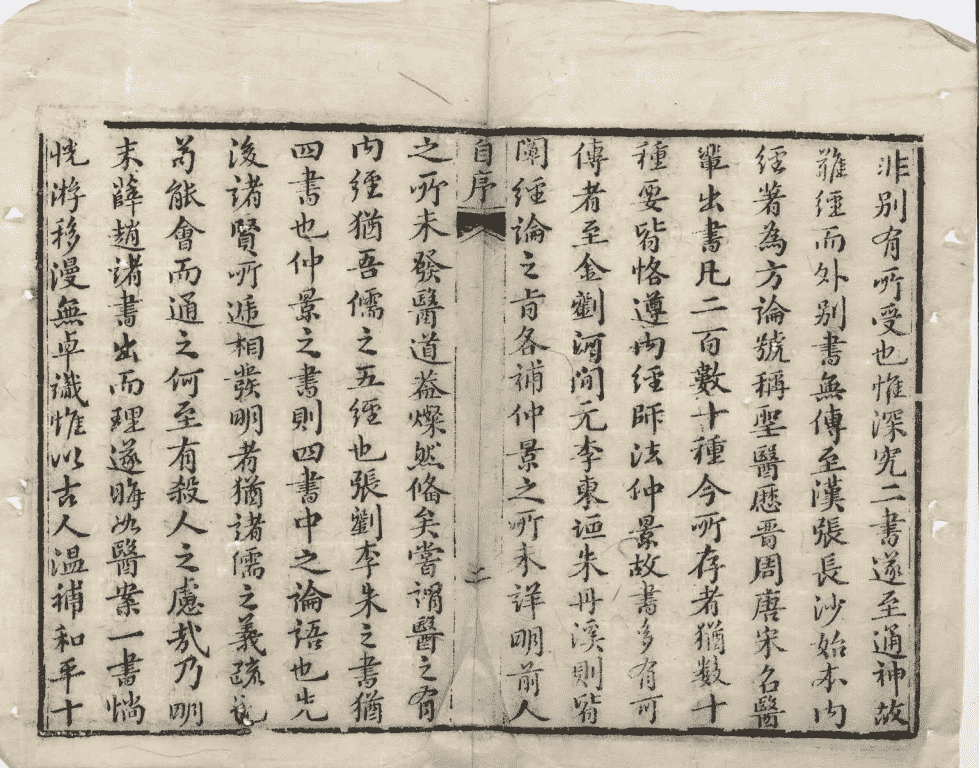 非別有所受也惟深究二書遂至通神故
難經而外別書無傳至漢張長沙始本內
經著為方論號稱聖醫歷晋周唐宋名醫
輩出書凢二百數十種今所存者猶数十
種要皆恪遵內經師法仲景故書多有可
傳者至金劉河間元李東垣朱丹溪則皆
闡經論之旨各補仲景之所未詳明前人
自序
二
之所未發醫道益燦然俻矣嘗謂醫之有
內經猶吾儒之五經也張劉李朱之書猶
四書也仲景之書則四書中之論語也先
後諸賢所遞相發明者猶諸儒之義疏也
茍能會而通之何至有殺人之慮哉乃明
末薛趙諸書出而理遂晦如醫案一書惝
恍游移漫無卓識惟以古人温補和平十